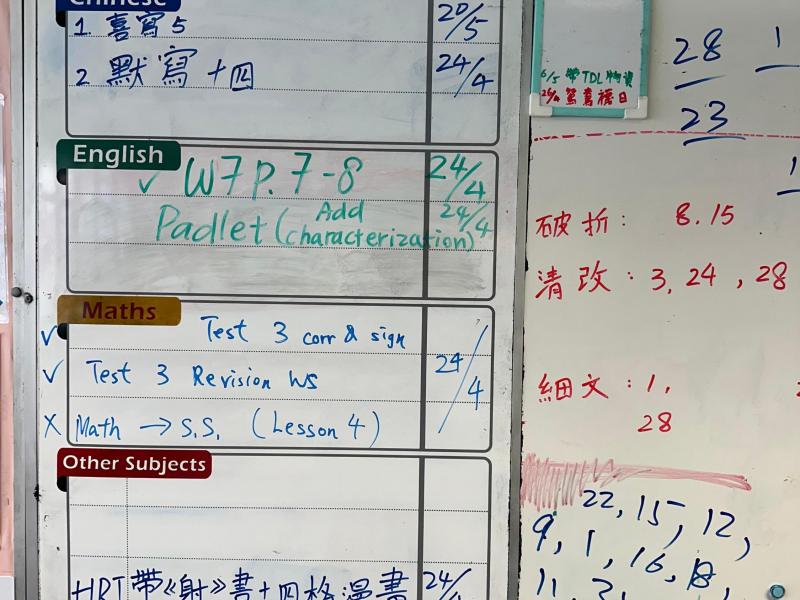 Chinese
1. 喜寫 5 20/5
2. 默寫十四 24/4
English
✓ W7 P.7-8 24/4
Padlet (Add characterization) 24/4
Maths
✓ Test 3 corr & sign
✓ Test 3 Revision WS 24/4
X Math → S.S. (Lesson 4)
Other Subjects
HRT帶《射》書+四格漫畫 24/
6/5 帶TDL物資
28 1
23
1
破折: 8.15
清改: 3, 24, 28
細文: 1,
28
22, 15, 12,
9, 1, 16, 18,
11, 2,